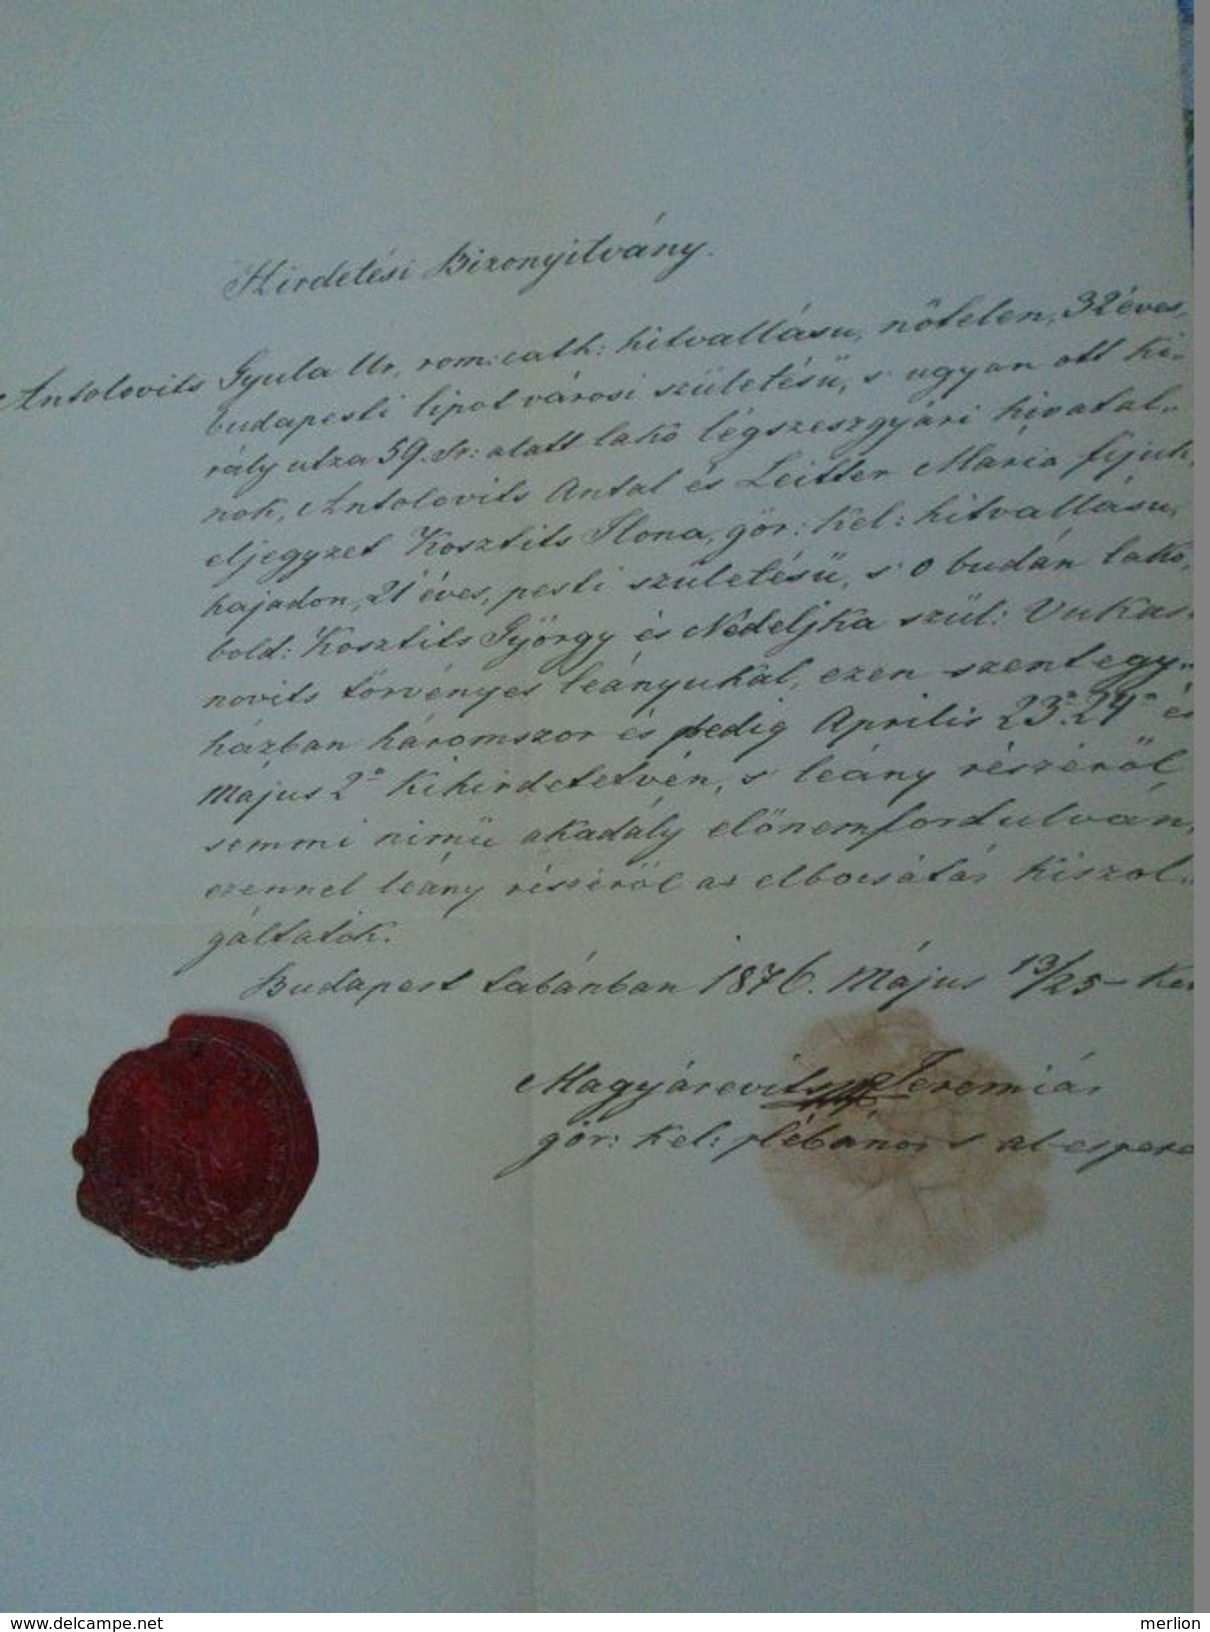 Hirdetési Bizonyitvány.
Antolovits Gyula Ur, rom: cath: hitvallásu, nőtelen, 32 éves,
budapesti lipotvárosi születésü, s ugyan ott Ki-
rály utza 59. Sz: alatt lakó légszeszgyári hivatal-
nok, Antolovits Antal és Leitter Mária fijuk,
eljegyzet Kosztits Ilona, gör: Kel: hitvallásu,
hajadon, 21 éves, pesti születésü, s o budán lakó,
bold: Kosztits György és Nédeljka szül: Vukas-
novits törvényes leányukal, ezen szentegy-
házban háromszor és pedig Április 23. 24 és
Május 2 Kihirdetetvén, s leány részéröl
semmi nimü akadály elönemfordulván,
ezennel leány részéröl az elbocsátás Kiszol-
gáltatik.
Budapest tabánban 1876. Május 13/25
Magyárevits Jeremiás
gör: Kel: plébános s al-espere
www.delcampe.net
merlion